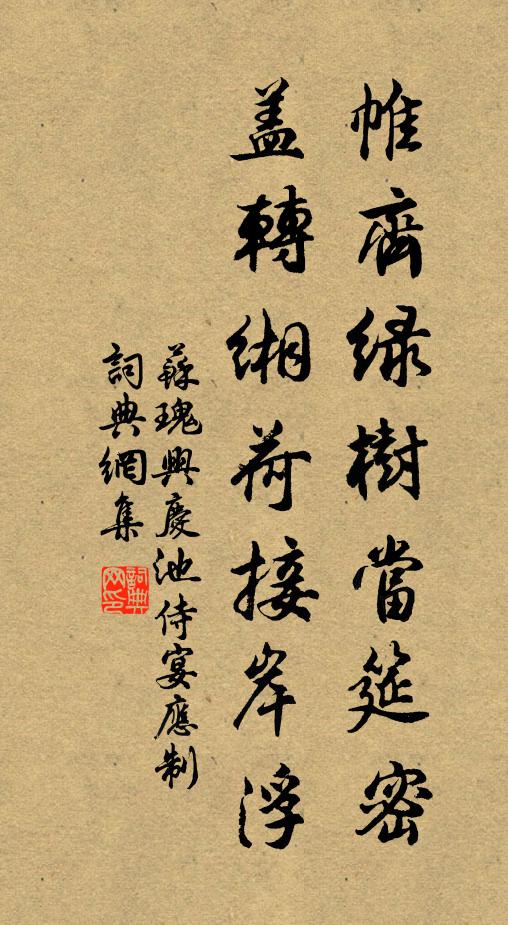 帷齊緑樹當筵密
盖轉緗荷接岸浮
蘇瑰興慶池侍宴應制
詞典網集
詞典網印